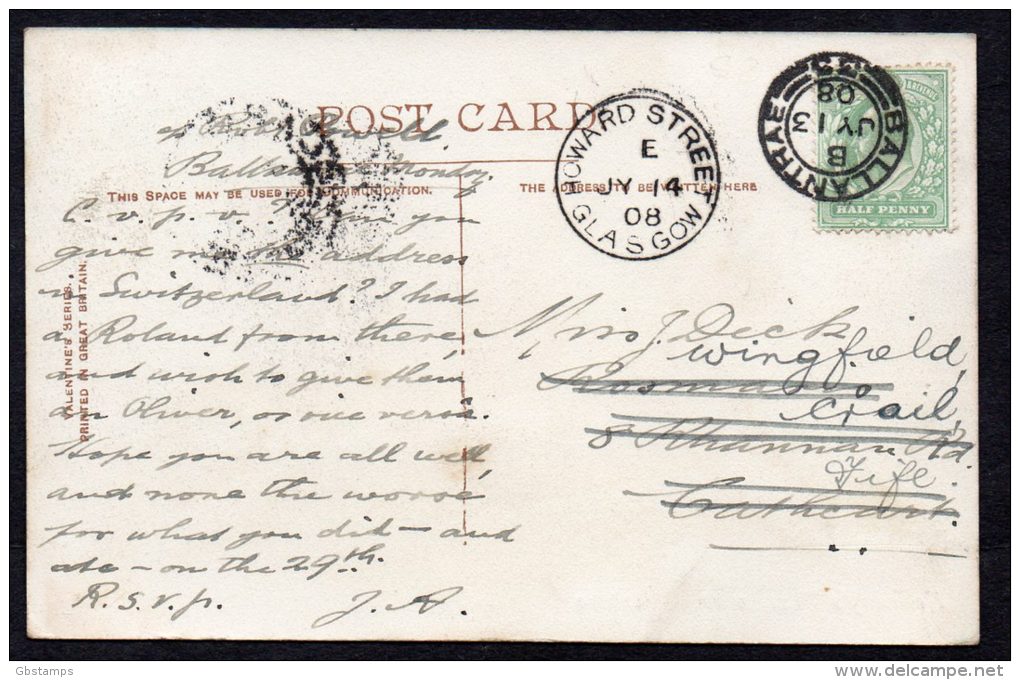 POST CARD
THIS SPACE MAY BE USED FOR COMMUNICATION.
THE ADDRESS TO BE WRITTEN HERE
VALENTINE'S SERIES.
PRINTED IN GREAT BRITAIN.
Monday.
you
give me the address
in Switzerland? I had
a Roland from there,
and wish to give them
an Oliver, or vice versâ.
Hope you are all well,
and none the worse
for what you did — and
ate — on the 29th.
R.S.V.P. J.A.
HOWARD STREET
E
JY 14
08
GLASGOW
BALLANTRAE
B
JY 13
08
& REVENUE
HALF PENNY
Miss J. Deck
Wingfield,
Crail,
8 Rd.
Fife.
Cathcart.
Gbstamps
delcampe.net